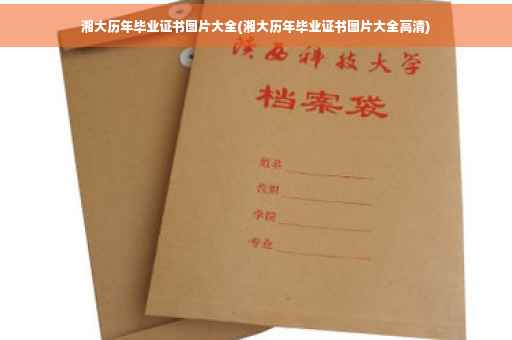 湘大历年毕业证书图片大全(湘大历年毕业证书图片大全高清)
陕西科技大学
档案袋
学院
专业